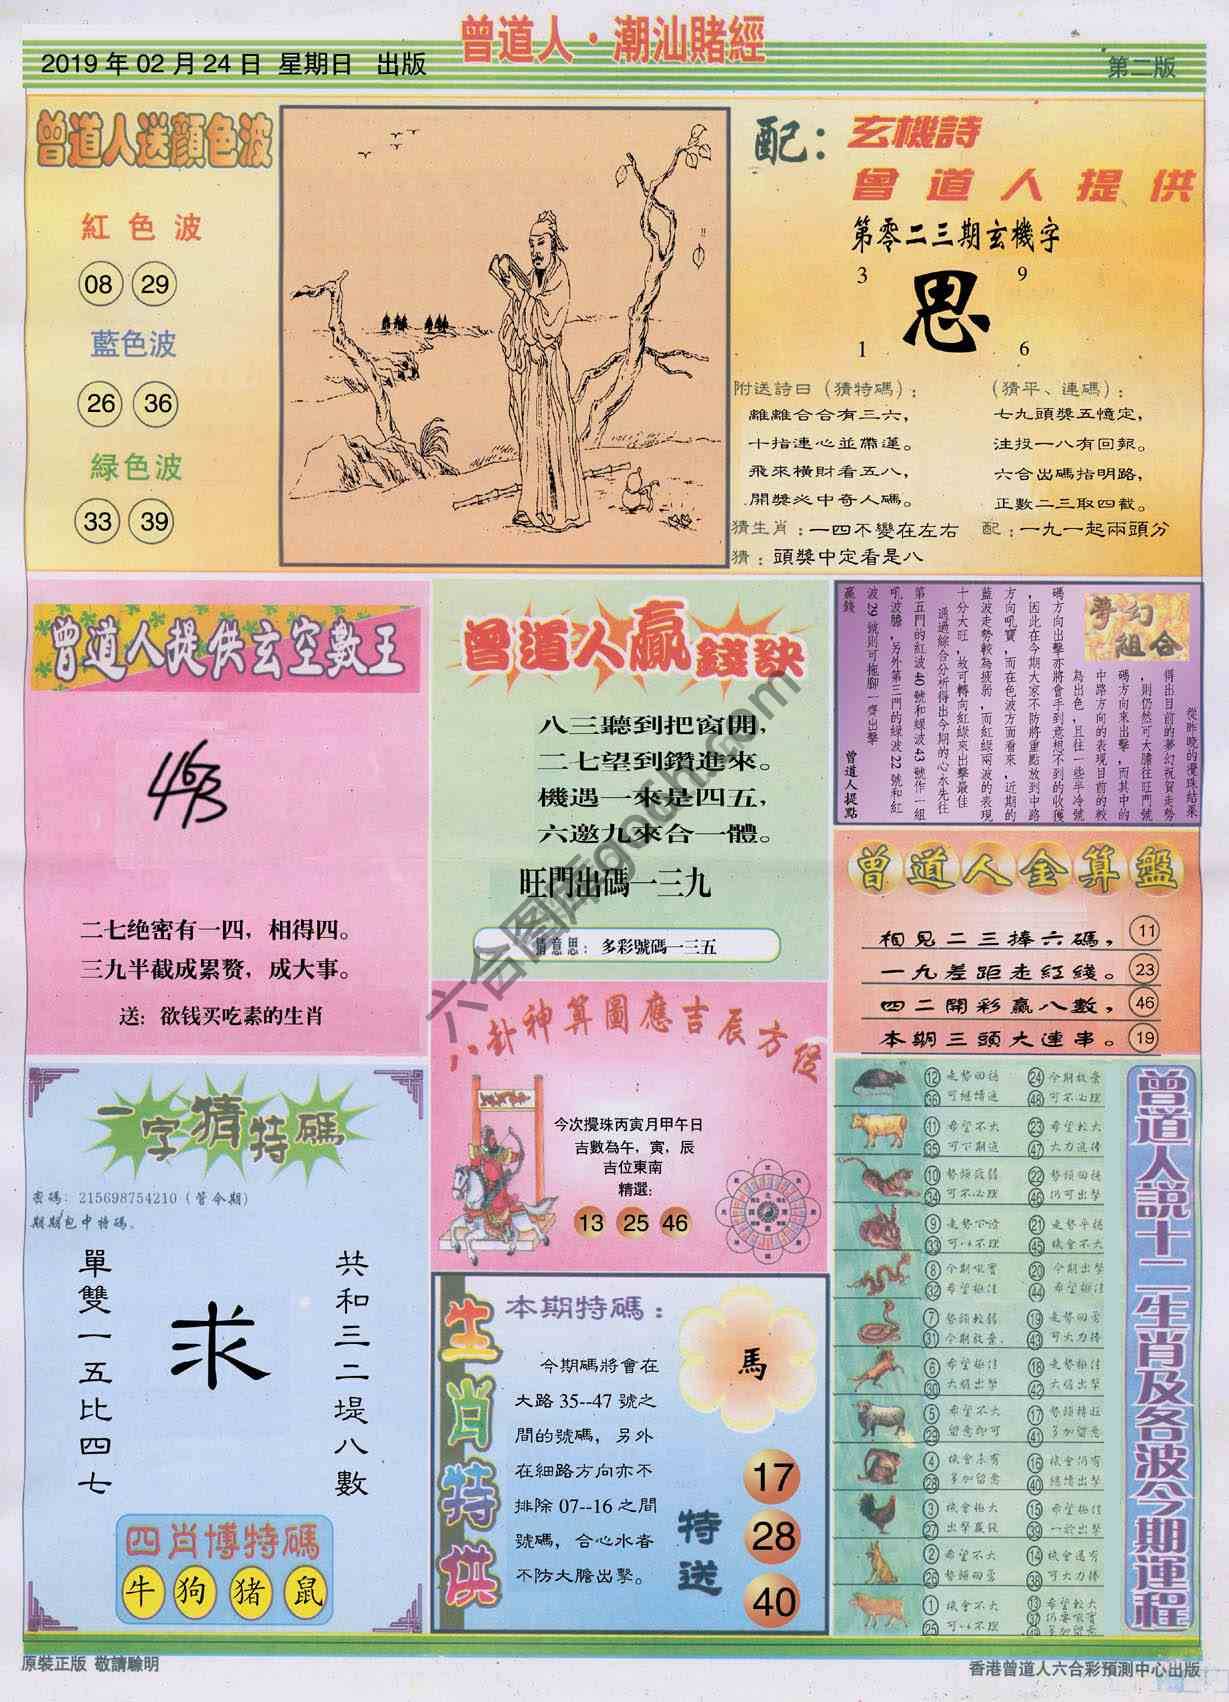 曾道人·潮汕賭經
2019年02月24日 星期日 出版
第二版
曾道人送顏色波
紅色波
08 29
藍色波
26 36
緑色波
33 39
配：玄機詩
曾道人提供
第零二三期玄機字
3 9
思
1 6
附送詩曰（猜特碼）：
離離合合有三六，
十指連心並帶運。
飛來橫財看五八，
開獎必中奇人碼。
（猜平、連碼）：
七九頭獎五憶定，
注投一八有回報。
六合出碼指明路，
正數二三取四截。
猜生肖：一四不變在左右
配：一九一起兩頭分
猜：頭獎中定看是八
曾道人提供玄空數王
463
二七绝密有一四，相得四。
三九半截成累赘，成大事。
送：欲钱买吃素的生肖
曾道人贏錢訣
八三聽到把窗開，
二七望到鑽進來。
機遇一來是四五，
六邀九來合一體。
旺門出碼一三九
猜意思：多彩號碼一三五
夢幻組合
從昨晚的攪珠結果
得出目前的夢幻祝賀走勢
，則仍然可大膽往旺門號
碼方向來出擊，而其中的
中路方向的表現目前的較
為出色，且往一些半冷號
碼方向出擊亦將會手到意想不到的收獲
，因此在今期大家不防將重點放到中路
方向吼寶，而在色波方面看來，近期的
藍波走勢較為疲弱，而紅綠兩波的表現
十分大旺，故可轉向紅綠來出擊最佳
。通過綜合分析得出今期的心水先往
第五門的紅波40號和绿波43號作一組
吼波膽，另外第三門的綠波22號和紅
波29號則可拖腳一齊出擊
贏錢
曾道人提點
曾道人金算盤
相見二三捧六碼， 11
一九差距走紅綫。 23
四二開彩贏八數， 46
本期三頭大連串。 19
八卦神算圖應吉辰方位
：
今次攪珠丙寅月甲午日
吉數為午，寅，辰
吉位東南
精選：
13 25 46
一字猜特碼
密碼：215698754210（管今期）
期期包中特碼。
單雙一五比四七
求
共和三二堤八數
四肖博特碼
牛 狗 猪 鼠
生肖特供
本期特碼：
今期碼將會在
大路35--47號之
間的號碼，另外
在細路方向亦不
排除07--16之間
號碼，合心水者
不防大膽出擊。
馬
特送
17
28
40
曾道人說十二生肖及各波今期運程
12 36 走勢回穩 可繼續追
24 48 今期放棄 可不必理
11 35 希望不大 可下期追
23 47 希望較大 大力追捧
10 34 勢頭疲弱 可不必理
22 46 勢頭回穩 仍可出擊
9 33 走勢下滑 可以不理
21 45 走勢平穩 機會不大
8 32 今期吼實 希望極佳
20 44 今期出擊 希望極佳
7 31 勢頭較弱 今期放棄
19 43 走勢回勇 可大力捧
6 30 希望極佳 大膽出擊
18 42 走勢極佳 大膽出擊
5 29 希望不大 留意即可
17 41 勢頭轉旺 多加留意
4 28 機會未有 多加留意
16 40 機會仍有 繼續出擊
3 27 機會極大 出擊贏錢
15 39 希望極佳 一於出擊
2 26 希望不大 勢頭回勇
14 38 機會還有 可大力捧
1 25 機會不大 可以不理
13 37 49 希望較大 仍要吼實 多加留意
原裝正版 敬請驗明
香港曾道人六合彩預測中心出版
六合图库go6h.com